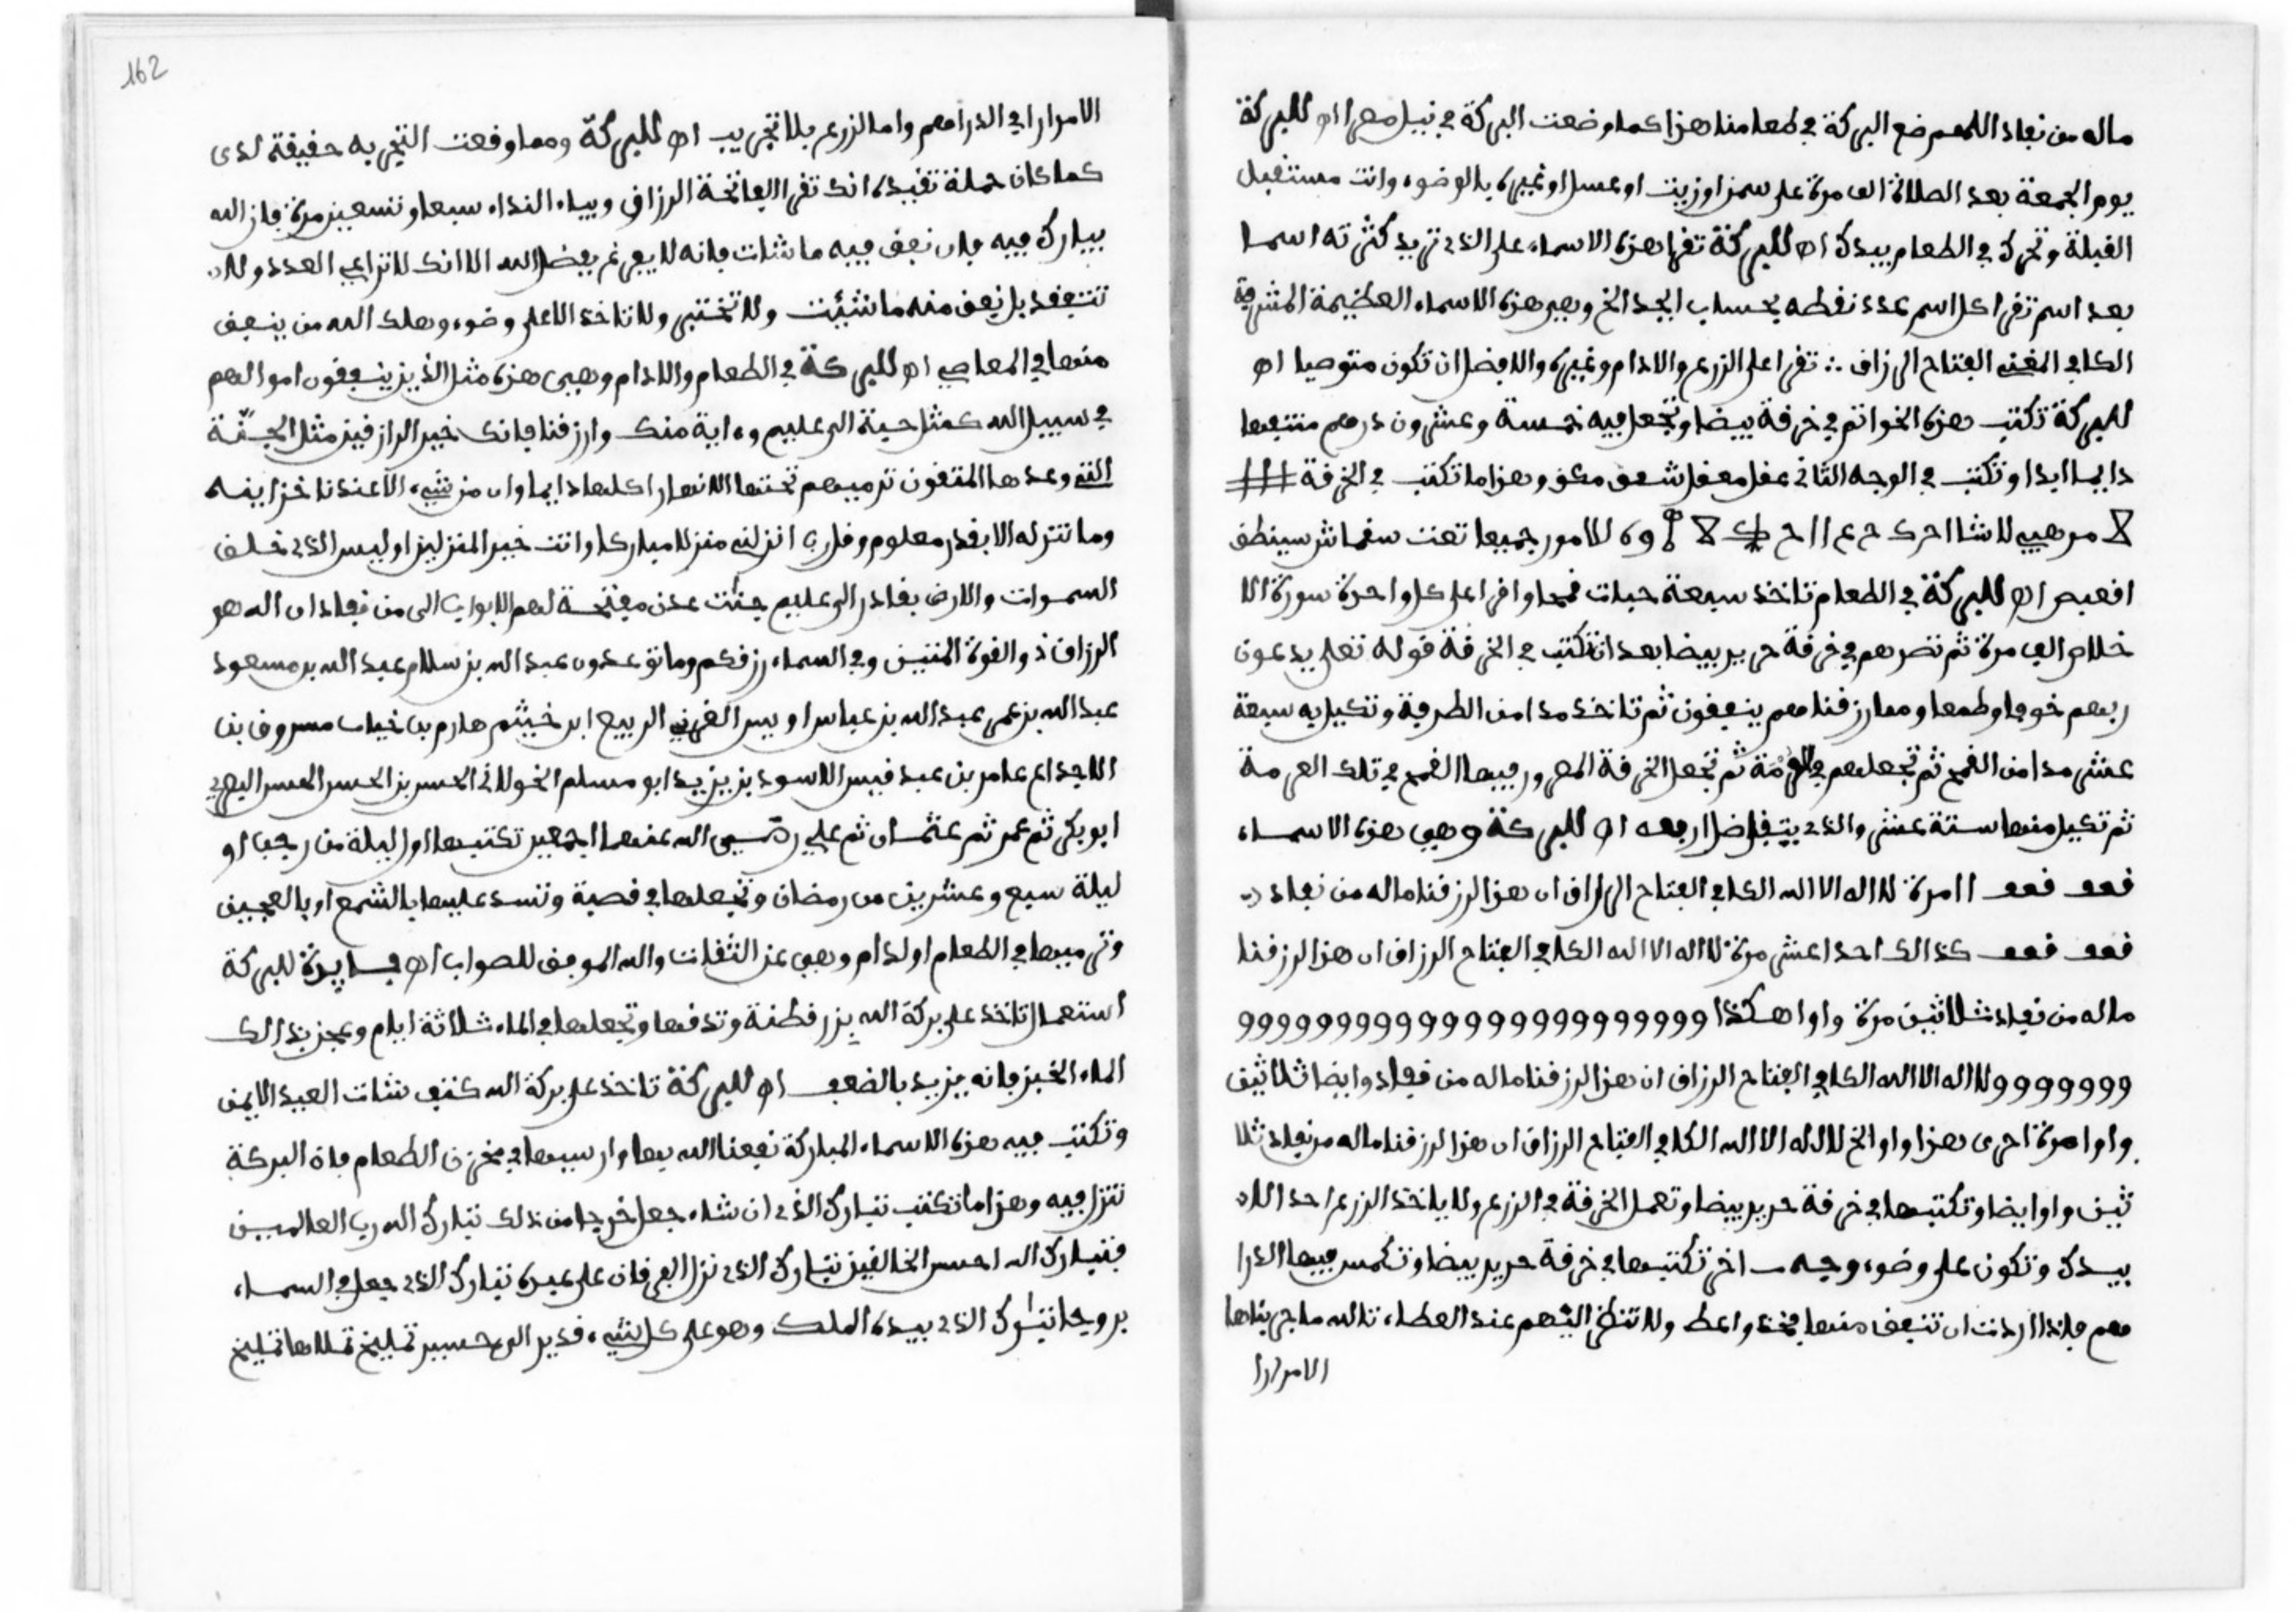 ماله من نفاد اللهم ضع البركة في طعامنا هذا كما وضعت البركة في نيل مصر اه للبركة
يوم الجمعة بعد الصلاة الف مرة على سمن او زيت او عسل او غيره بالوضوء وانت مستقبل
القبلة وتحرك في الطعام بيدك اه للبركة تقرا هذه الاسماء على الذي تريد كثرته اسما
بعد اسم تقرا كل اسم عدد نقطه بحساب ابجد الخ وهي هذه الاسماء العظيمة المشرفة
الكافي المغني الفتاح الرزاق ∴ تقرا على الزرع والادام وغيره والافضل ان تكون متوضيا اه
للبركة تكتب هذه الخواتم في خرقة بيضا وتجعل فيه خمسة وعشرون درهم منتفعا
دايما ابدا وتكتب في الوجه الثاني وهذا ما تكتب في الخرقة
للامور جميعا
اه للبركة في الطعام تاخذ سبعة حبات قمحا واقرا على كل واحدة سورة الا
خلاص الف مرة ثم تصرهم في خرقة حرير بيضا بعد ان تكتب في الخرقة قوله تعلى يدعون
ربهم خوفا وطمعا ومما رزقناهم ينفقون ثم تاخذ مدا من الطرفة وتكيل به سبعة
عشر مدا من القمح ثم تجعلهم في العرمة ثم تجعل الخرقة القمح في تلك العرمة
ثم تكيل منها ستة عشر والذي يتفاضل ارفعه اه للبركة وهي هذه الاسماء
فعو فعو اا مرة لا اله الا الله الكافي الفتاح الرزاق ان هذا لرزقنا ماله من نفاد
فعو فعو كذالك احدا عشر مرة لا اله الا الله الكافي الفتاح الرزاق ان هذا لرزقنا
ماله من نفاد ثلاثين مرة واوا هكذا و و و و و و و و و و و و و و و و و و و و و و
و و و و و و و لا اله الا الله الكافي الفتاح الرزاق ان هذا لرزقنا ماله من نفاد وايضا ثلاثين
واوا مرة اخرى هذا واوا الخ لا اله الا الله الكافي الفتاح الرزاق ان هذا لرزقنا ماله من نفاد ثلا
ثين واوا ايضا وتكتبها في خرقة حرير بيضا وتعمل الخرقة في الزرع ولا ياخذ الزرع احد الا
بيدك وتكون على وضوء وجه اخر تكتبها في خرقة حرير بيضا وتكمس فيها الدرا
هم فاذا اردت ان تنفق منها فخذ واعط ولا تنظر اليهم عند العطاء تالله ما جربناها
الامرارا
162
الامرارا في الدراهم واما الزرع بلا تجريب اه للبركة ومما وقعت التجربه حقيقة لدى
كما كان جملة تقييده انك تقرا الفاتحة الرزاق وبياء النداء سبعا وتسعين مرة فان الله
يبارك فيه فان نفق فيه ما شات فانه لا يفرغ بفضل الله الا انك لا تراعي العدد ولا
تتفقد بل نفق منه ما شئت ولا تختبر ولا تاخذ الا على وضوء وهلك الله من ينفق
منها في المعاصي اه للبركة في الطعام والادام وهي هذه مثل الذين ينفقون اموالهم
في سبيل الله كمثل حبة الى عليم وءاية منك وارزقنا فانك خير الرازقين مثل الجنة
التي وعدها المتقون ترميهم تحتها الانهار اكلها دايما وان من شيء الا عندنا خزاينه
وما ننزله الا بقدر معلوم وقل رب انزلني منزلا مباركا وانت خير المنزلين اوليس الذي خلق
السموات والارض بقادر الى عليم جنت عدن مفتحة لهم الابواب الى من نفاد ان الله هو
الرزاق ذو القوة المتين وفي السماء رزقكم وما توعدون عبد الله بن سلام عبد الله بن مسعود
عبد الله بن عمر عبد الله بن عباس اويس القرني الربيع ابن خيثم هارم بن خيان مسروق بن
الاجداع عامر بن عبد قيس الاسود بن يزيد ابو مسلم الخولاني الحسن بن الحسن الحسن البصري
ابو بكر ثم عمر ثم عثمان ثم علي رضي الله عنهما اجمعين تكتبها اول ليلة من رجب او
ليلة سبع وعشرين من رمضان وتجعلها في قصبة وتسد عليها بالشمع او بالعجين
وترميها في الطعام او لدام وهي عن الثقات والله الموفق للصواب اه فايدة للبركة
استعمال تاخذ على بركة الله بزر قطنة وتدقها وتجعلها في الماء ثلاثة ايام وعجن بذالك
الماء الخبز فانه يزيد بالضعف اه للبركة تاخذ على بركة الله كتف شات العيد الايمن
وتكتب فيه هذه الاسماء المباركة نفعنا الله بها وارسيها في مخزن الطعام فان البركة
تنزل فيه وهذا ما تكتب تبارك الذي ان شاء جعل خيرا من ذلك تبارك الله رب العالمين
فتبارك الله احسن الخالقين تبارك الذي نزل الفرقان على عبده تبارك الذي جعل في السماء
بروجا تبرك الذي بيده الملك وهو على كل شيء قدير الى حسير تمليخ تملاها تمليخ